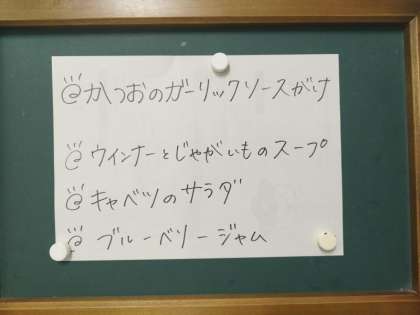 @かつおのガーリックソースがけ
@ウインナーとじゃがいものスープ
@キャベツのサラダ
@ブルーベリージャム